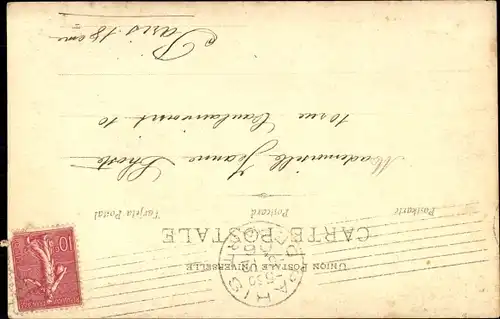 UNION POSTALE UNIVERSELLE
CARTE POSTALE
Postkarte Postcard Tarjeta Postal
Mademoiselle Jeanne
10 rue Caulaincourt 10
Paris 18 eme
10